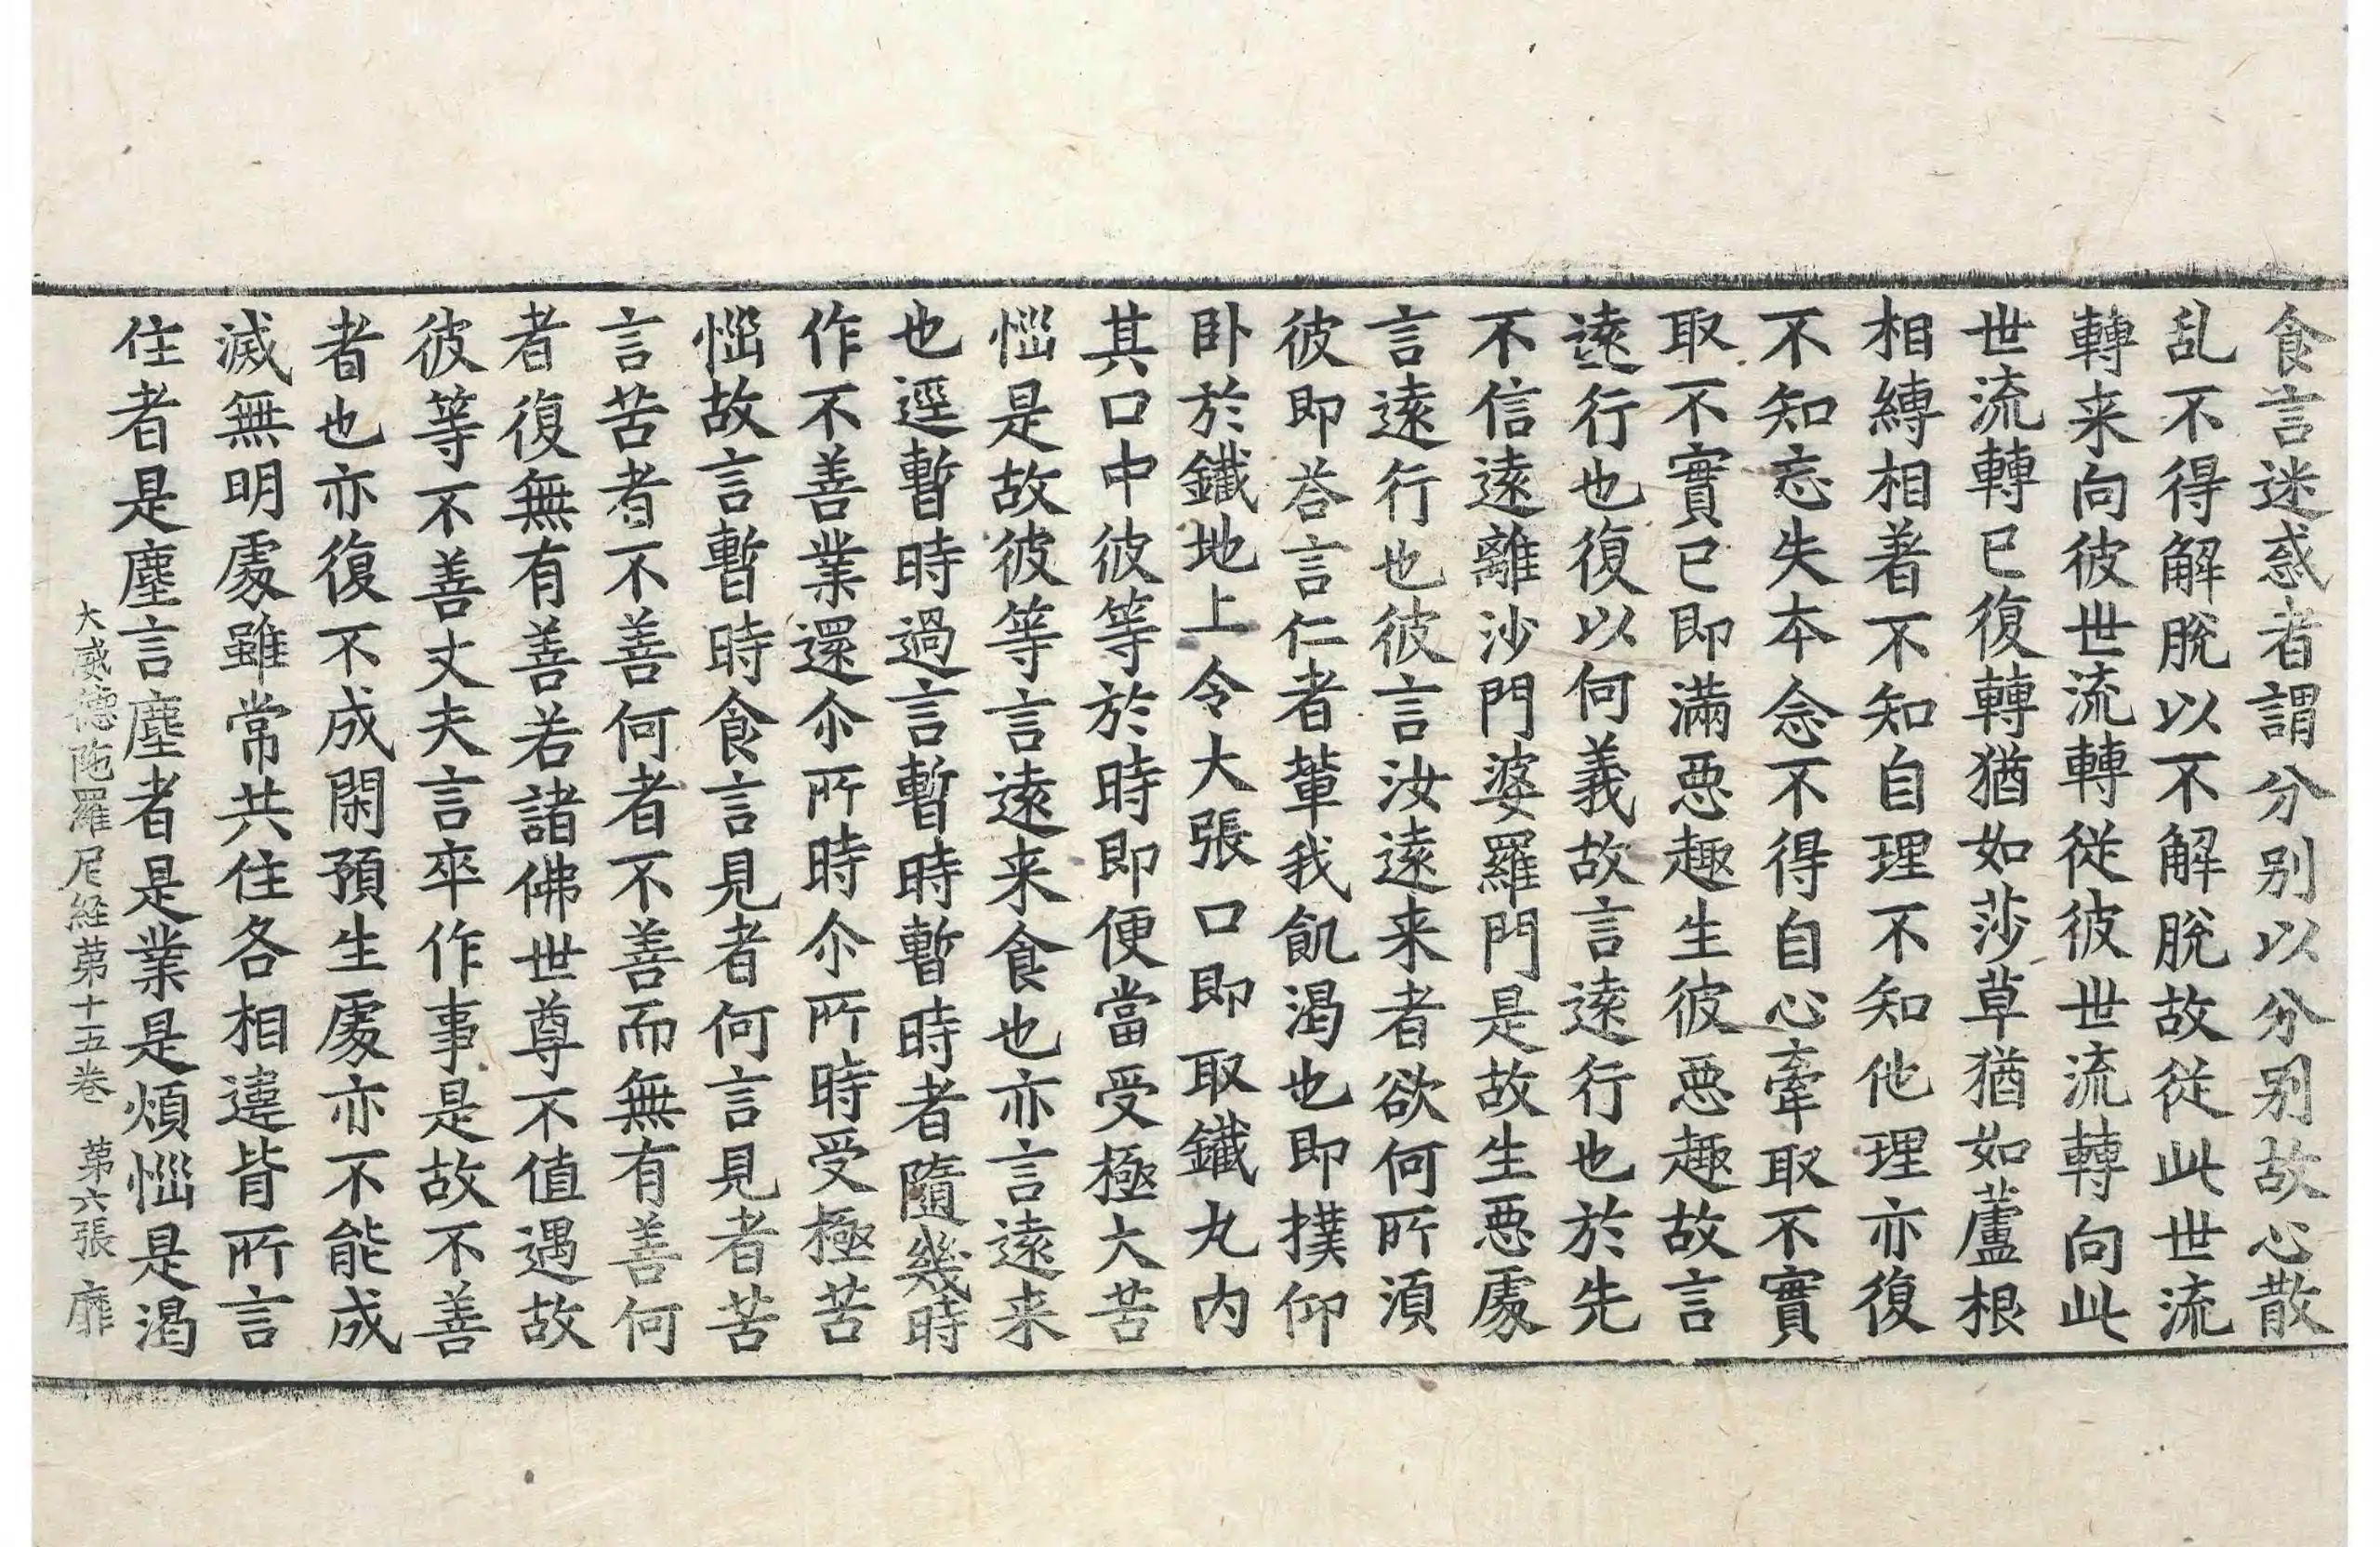 食言迷惑者謂分別以分別故心散
乱不得解脫以不解脫故從此世流
轉来向彼世流轉從彼世流轉向此
世流轉已復轉猶如莎草猶如蘆根
相縛相著不知自理不知他理亦復
不知忘失本念不得自心牽取不實
取不實已即滿惡趣生彼惡趣故言
遠行也復以何義故言遠行也於先
不信遠離沙門婆羅門是故生惡處
言遠行也彼言汝遠来者欲何所須
彼即荅言仁者輩我飢渴也即撲仰
卧於鐵地上令大張口即取鐵丸内
其口中彼等於時即便當受極大苦
惱是故彼等言遠来食也亦言遠来
也逕暫時過言暫時暫時者隨幾時
作不善業還尒所時尒所時受極苦
惱故言暫時食言見者何言見者苦
言苦者不善何者不善而無有善何
者復無有善若諸佛世尊不值遇故
彼等不善丈夫言卒作事是故不善
者也亦復不成閑預生處亦不能成
滅無明處雖常共住各相違背所言
住者是塵言塵者是業是煩惱是渴
大威德陁羅尼経苐十五卷 苐六張 靡